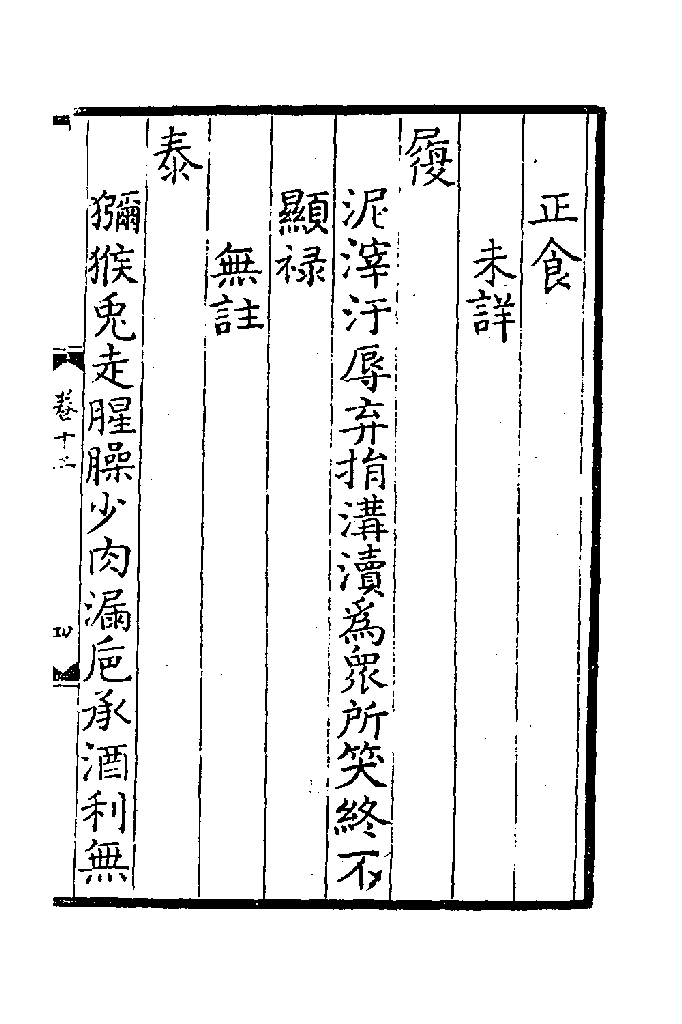 正食
未詳
履
泥滓汙辱弃捐溝瀆爲衆所笑終不
顯禄
無註
泰
獼猴兎走腥臊少肉漏巵承酒利無
卷十三
四